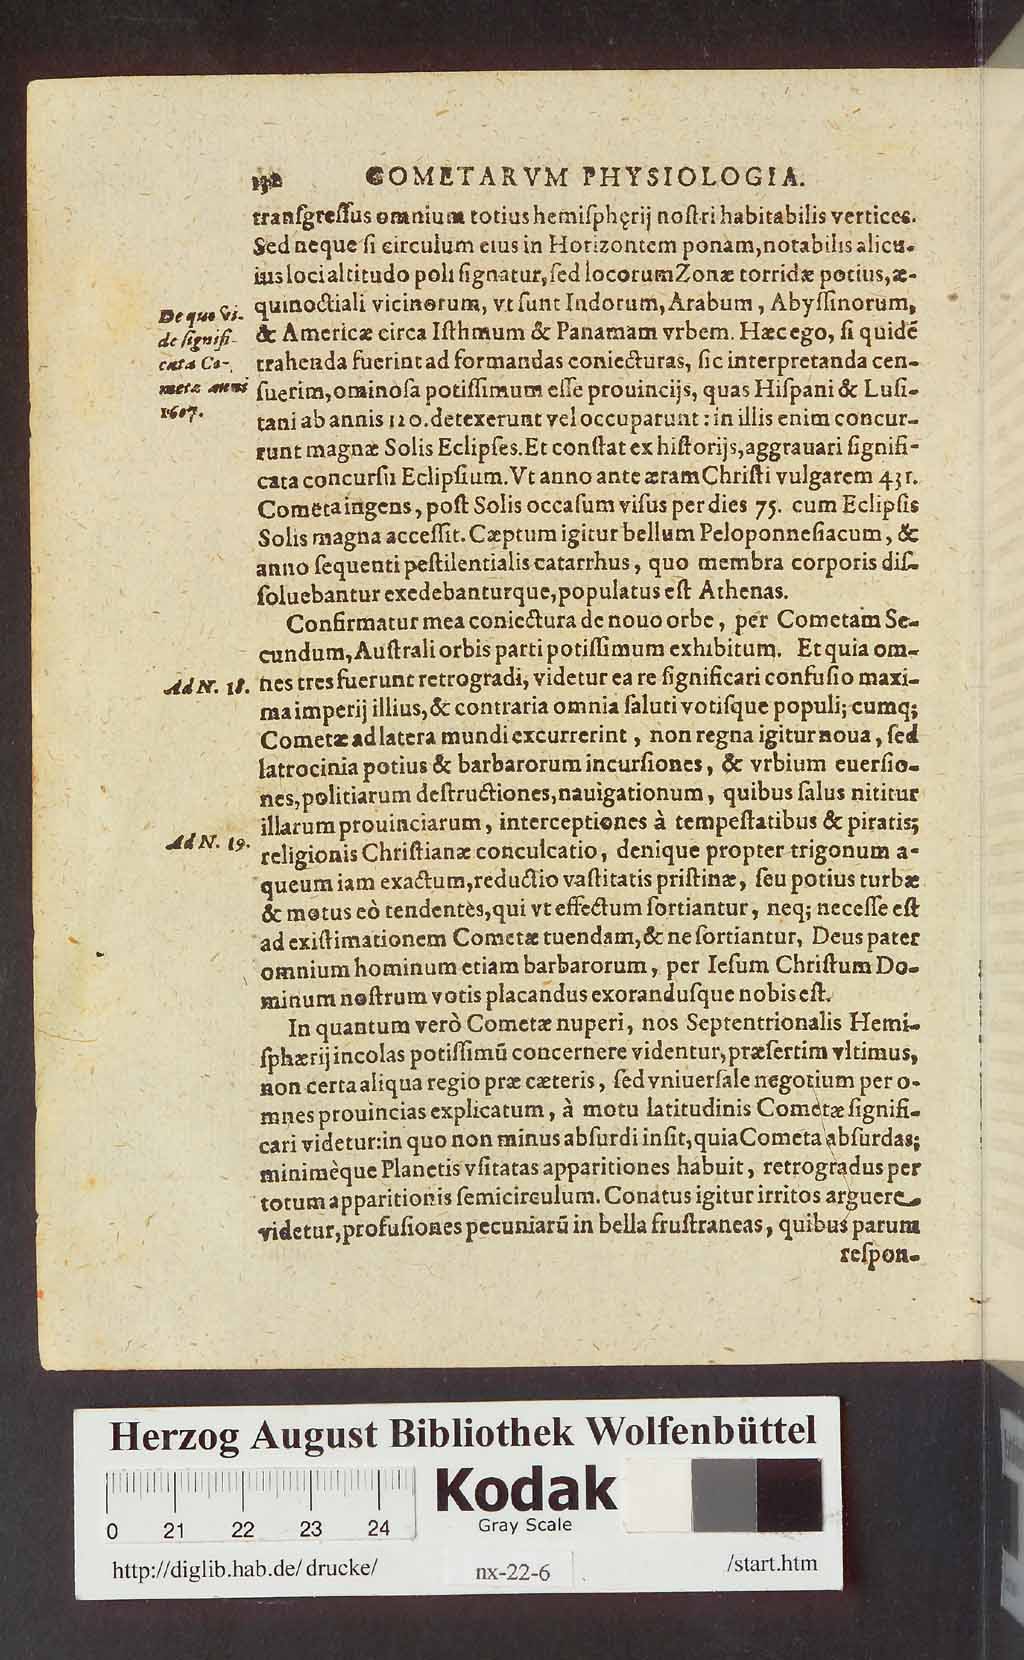 132 COMETARVM PHYSIOLOGIA.
tranſgreſſus omnium totius hemiſphęrij noſtri habitabilis vertices.
Sed neque ſi circulum eius in Horizontem ponam, notabilis alicu-
ius loci altitudo poli ſignatur, ſed locorum Zonæ torridæ potius, æ-
quinoctiali vicinorum, vt ſunt Indorum, Arabum, Abyſſinorum,
& Americæ circa Iſthmum & Panamam vrbem. Hæc ego, ſi quidē
trahenda fuerint ad formandas coniecturas, ſic interpretanda cen-
ſuerim, ominoſa potiſſimum eſſe prouincijs, quas Hiſpani & Luſi-
tani ab annis 120. detexerunt vel occuparunt: in illis enim concur-
runt magnæ Solis Eclipſes. Et conſtat ex hiſtorijs, aggrauari ſignifi-
cata concurſu Eclipſium. Vt anno ante æram Chriſti vulgarem 431.
Cometa ingens, poſt Solis occaſum viſus per dies 75. cum Eclipſis
Solis magna acceſſit. Cæptum igitur bellum Peloponneſiacum, &
anno ſequenti peſtilentialis catarrhus, quo membra corporis diſ-
ſoluebantur exedebanturque, populatus eſt Athenas.
De quo vi-
de ſignifi-
cata Co-
metæ anni
1607.
Confirmatur mea coniectura de nouo orbe, per Cometam Se-
cundum, Auſtrali orbis parti potiſſimum exhibitum. Et quia om-
nes tres fuerunt retrogradi, videtur ea re ſignificari confuſio maxi-
ma imperij illius, & contraria omnia ſaluti votiſque populi; cumq;
Cometæ ad latera mundi excurrerint, non regna igitur noua, ſed
latrocinia potius & barbarorum incurſiones, & vrbium euerſio-
nes, politiarum deſtructiones, nauigationum, quibus ſalus nititur
illarum prouinciarum, interceptiones à tempeſtatibus & piratis;
religionis Chriſtianæ conculcatio, denique propter trigonum a-
queum iam exactum, reductio vaſtitatis priſtinæ, ſeu potius turbæ
& motus eò tendentes, qui vt effectum ſortiantur, neq; neceſſe eſt
ad exiſtimationem Cometæ tuendam, & ne ſortiantur, Deus pater
omnium hominum etiam barbarorum, per Ieſum Chriſtum Do-
minum noſtrum votis placandus exoranduſque nobis eſt.
Ad N. 18.
Ad N. 19.
In quantum verò Cometæ nuperi, nos Septentrionalis Hemi-
ſphærij incolas potiſſimū concernere videntur, præſertim vltimus,
non certa aliqua regio præ cæteris, ſed vniuerſale negotium per o-
mnes prouincias explicatum, à motu latitudinis Cometæ ſignifi-
cari videtur: in quo non minus abſurdi inſit, quia Cometa abſurdas;
minimèque Planetis vſitatas apparitiones habuit, retrogradus per
totum apparitionis ſemicirculum. Conatus igitur irritos arguere
videtur, profuſiones pecuniarū in bella fruſtraneas, quibus parum
reſpon-
Herzog August Bibliothek Wolfenbüttel
Kodak
Gray Scale
0 21 22 23 24
http://diglib.hab.de/drucke/
nx-22-6
/start.htm